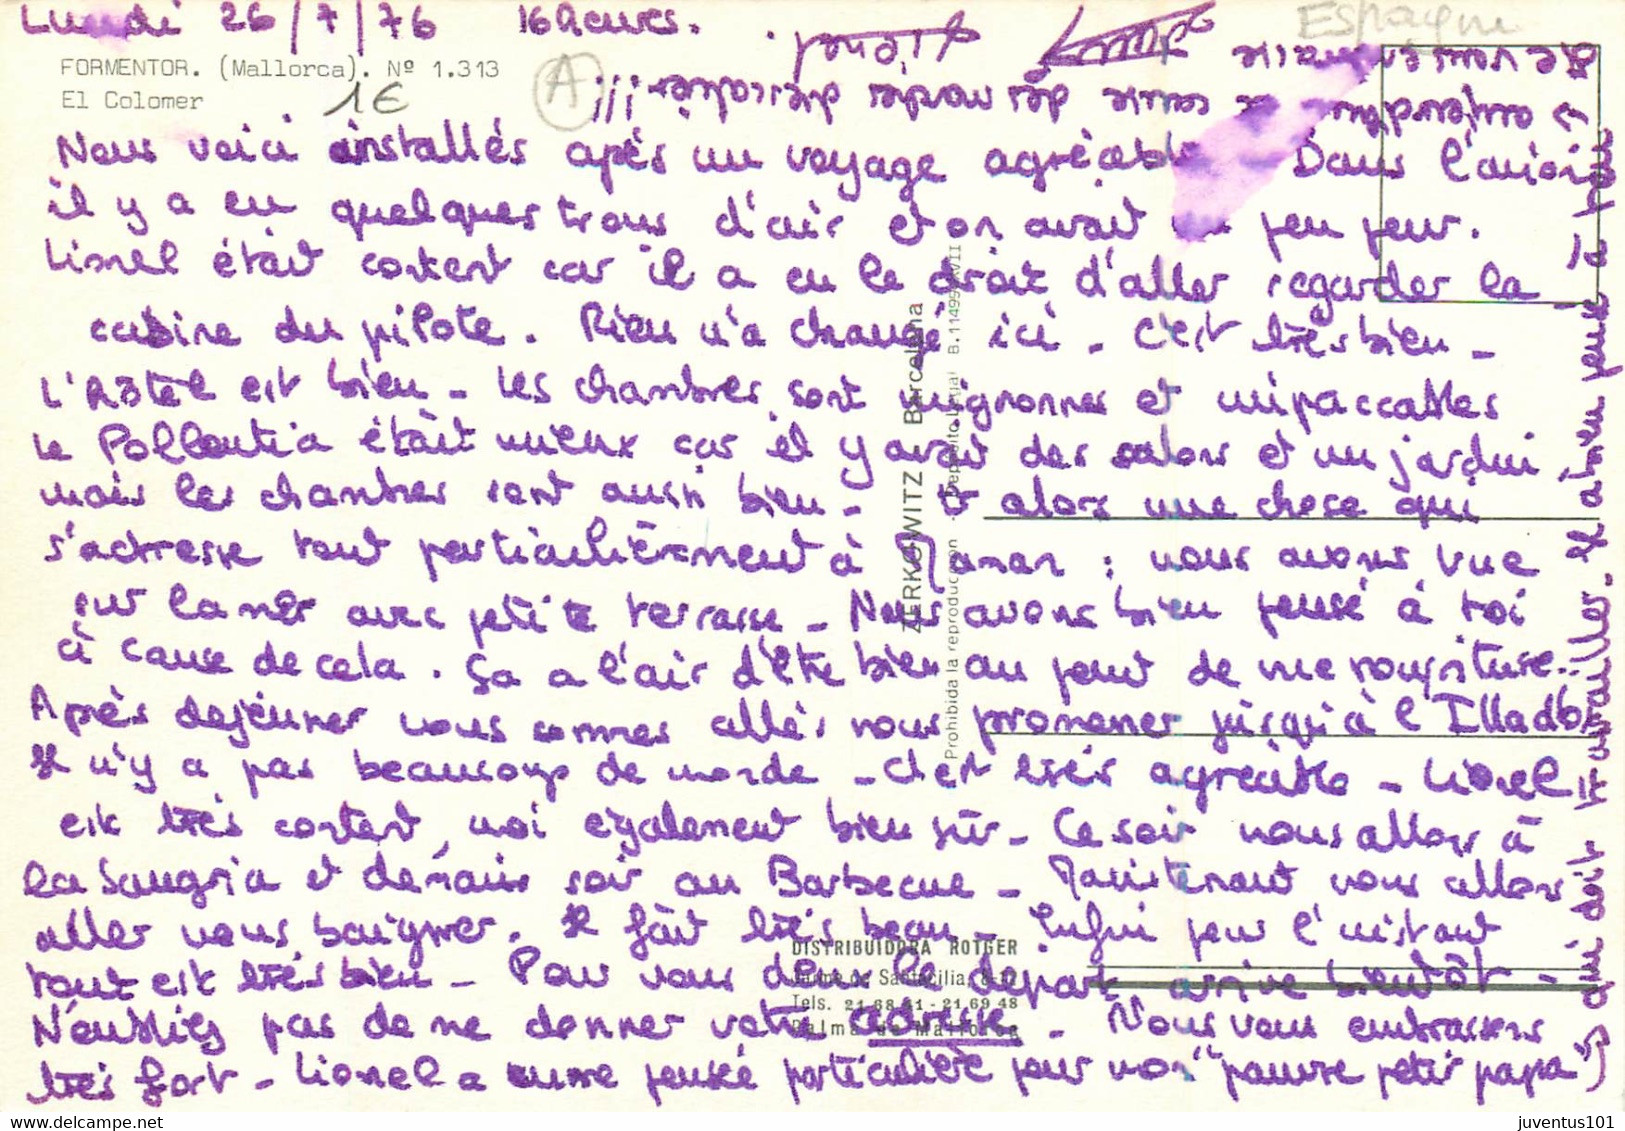 Lundi 26/7/76 16 heures.
Espagne
FORMENTOR. (Mallorca). Nº 1.313
El Colomer
1€
A
Nous voici installés après un voyage agréable Dans l'avion
il y a eu quelques trous d'air et on avait un peu peur.
Lionel était content car il a eu le droit d'aller regarder la
cabine du pilote. Rien n'a changé ici. C'est très bien -
L'hôtel est bien - Les chambres sont mignonnes et impeccables
Le Pollentia était mieux car il y avait des salons et un jardin
mais les chambres sont aussi bien - Et alors une chose qui
s'adresse tout particulièrement à Maman : nous avons vue
sur la mer avec petite terrasse - Nous avons bien pensé à toi
à cause de cela. Ça a l'air d'être bien au point de vue nourriture.
Après déjeuner nous sommes allés nous promener jusqu'à l'Illador
Il n'y a pas beaucoup de monde - C'est très agréable - Lionel
est très content, moi également bien sûr - Ce soir nous allons à
la Sangria et demain soir au Barbecue - Maintenant nous allons
aller nous baigner. Il fait très beau - Enfin pour l'instant
tout est très bien - Pour vous deux le départ arrive bientôt -
N'oubliez pas de me donner votre adresse - Nous vous embrassons
très fort - Lionel a une pensée particulière pour mon "pauvre petit papa"
qui doit travailler. Il a bien pensé à
Lionel
ZERKOWITZ Barcelona
Prohibida la reproducción - Depósito Legal B. 11499-XVII
DISTRIBUIDORA ROTGER
Tels. 21 68 41 - 21 69 48
Palma de Mallorca
juventus101